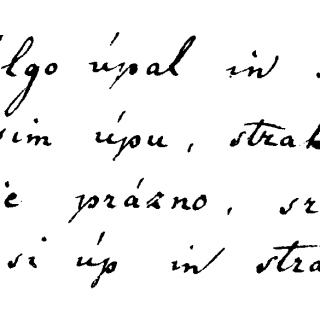 lgo úpal in
sim úpu, strah
je prázno, sr
si úp in stra